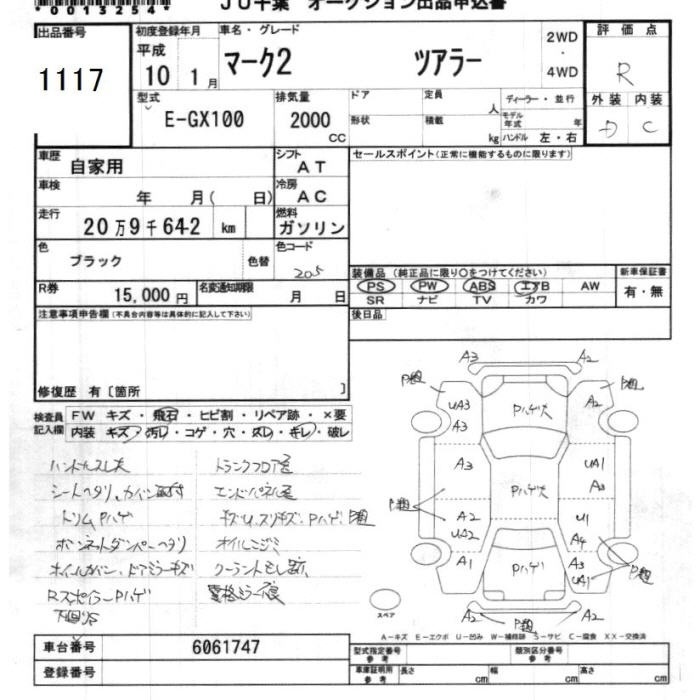 *0013254*
JU千葉 オークション出品申込書
出品番号
1117
初度登録年月
平成
10 1月
車名・グレード
マーク2 ツアラー
2WD
・
4WD
評価点
R
外装 内装
D C
型式
E-GX100
排気量
2000
CC
ドア 定員 人
形状 積載 kg
ディーラー・並行
モデル年式 年
ハンドル 左・右
車歴
自家用
シフト
AT
セールスポイント(正常に機能するものに限ります)
車検
年 月( 日)
冷房
AC
走行
20万9千642 km
燃料
ガソリン
色
ブラック
色替
色コード
205
R券
15,000円
名変通知期限
月 日
装備品(純正品に限り○をつけてください)
PS PW ABS エアB AW
SR ナビ TV カワ
新車保証書
有・無
後日品
注意事項申告欄(不具合内容等は具体的に記入して下さい)
修復歴 有〔箇所 〕
検査員記入欄
FW キズ・飛石・ヒビ割・リペア跡・×要
内装 キズ・汚レ・コゲ・穴・スレ・キレ・破レ
ハンドルスレ大
トランクフロア歪
シートヘタリ、
エンドパネル歪
トリムPハゲ
キズU、スリキズ、Pハゲ
ボンネットダンパーヘタリ
オイルニジミ
ホイールカバー、ドアミラーキズ
クーラントもレ跡
RスポイラーPハゲ
下回りサ
A3 A2
UA3
A3
Pハゲ大
A2
A3
Pハゲ大
UA1
A3
A2
UA2
U1
A4
A1
Pハゲ
A3
UA1
A2 A2
スペア
A-キズ E-エクボ U-凹み W-補修跡 S-サビ C-腐食 XX-交換済
車台番号
6061747
登録番号
型式指定番号
参考
類別区分番号
参考
車庫証明用
参考
長さ cm 幅 cm 高さ cm